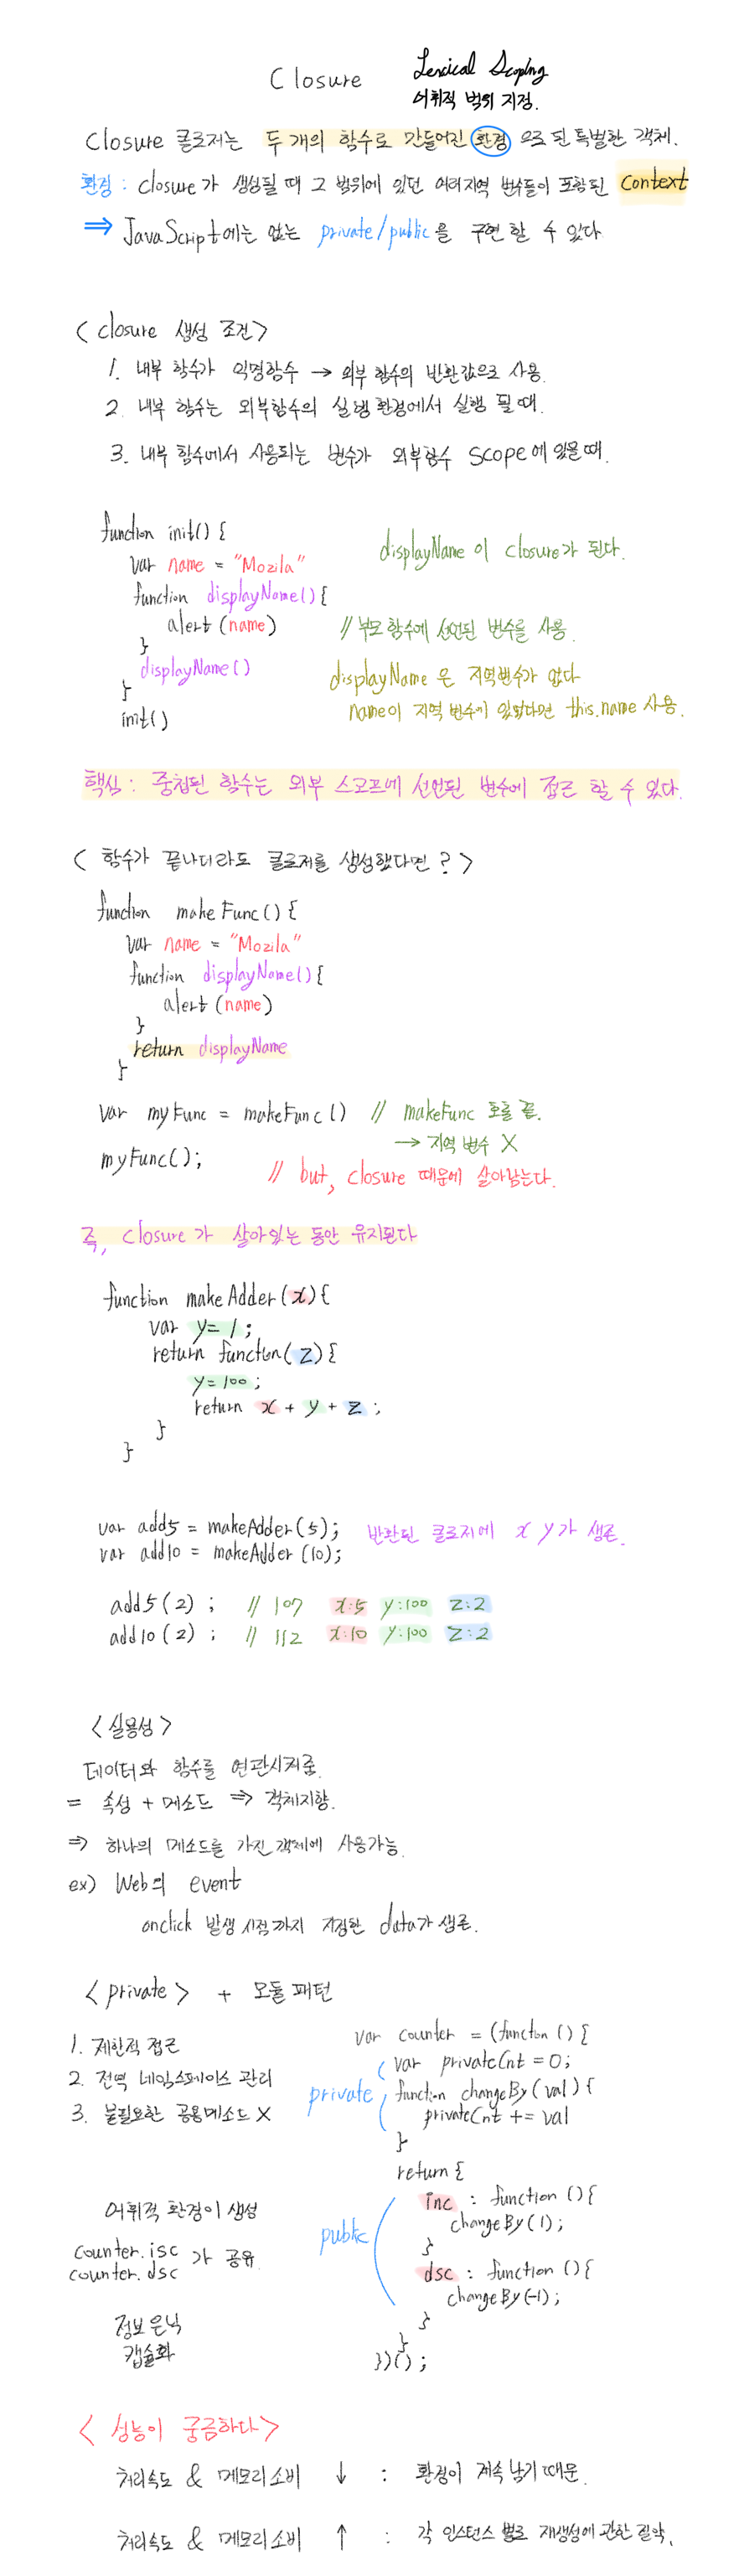 Closure
Lexical Scoping
어휘적 범위 지정.
Closure 클로저는 두 개의 함수로 만들어진 환경 으로 된 특별한 객체.
환경 : closure가 생성될 때 그 범위에 있던 여러지역 변수들이 포함된 context
⇒ JavaScript에는 없는 private/public을 구현 할 수 있다
< closure 생성 조건>
1. 내부 함수가 익명함수 → 외부 함수의 반환값으로 사용.
2. 내부 함수는 외부함수의 실행 환경에서 실행 될 때.
3. 내부 함수에서 사용되는 변수가 외부함수 scope에 있을때.
function init() {
var name = "Mozila"
displayName 이 closure가 된다.
function displayName() {
alert (name) // 부모 함수에 선언된 변수를 사용.
}
displayName()
}
init()
displayName 은 지역변수가 없다
name이 지역 변수에 있었다면 this.name 사용.
핵심 : 중첩된 함수는 외부 스코프에 선언된 변수에 접근 할 수 있다.
< 함수가 끝나더라도 클로저를 생성했다면 ? >
function makeFunc() {
var name = "Mozila"
function displayName() {
alert (name)
}
return displayName
}
var myFunc = makeFunc() // makeFunc 호출 끝.
→ 지역 변수 X
myFunc();
// but, closure 때문에 살아남는다.
즉, closure 가 살아있는 동안 유지된다
function makeAdder (x) {
var y= 1 ;
return function( z) {
y=100 ;
return x + y + z ;
}
}
var add5 = makeAdder (5); 반환된 클로저에 x y가 생존.
var add10 = makeAdder (10);
add5 (2) ; // 107 x:5 y:100 z:2
add10 (2) ; // 112 x:10 y:100 z:2
< 실용성 >
데이터와 함수를 연관시켜줌.
= 속성 + 메소드 ⇒ 객체지향.
⇒ 하나의 메소드를 가진 객체에 사용가능.
ex) Web의 event
onclick 발생 시점까지 지정한 data가 생존.
< private > + 모듈 패턴
1. 제한적 접근
2. 전역 네임스페이스 관리
3. 불필요한 공용메소드 X
var counter = (function () {
var privateCnt = 0;
private
function changeBy (val) {
privateCnt += val
}
return {
inc : function () {
changeBy (1) ;
}
public
dsc : function () {
changeBy (-1) ;
}
}
})() ;
어휘적 환경이 생성
counter.isc
counter.dsc 가 공유.
정보 은닉
캡슐화
< 성능이 궁금하다 >
처리속도 & 메모리 소비 ↓ : 환경이 계속 남기 때문.
처리속도 & 메모리 소비 ↑ : 각 인스턴스 별로 재생성에 관한 절약.